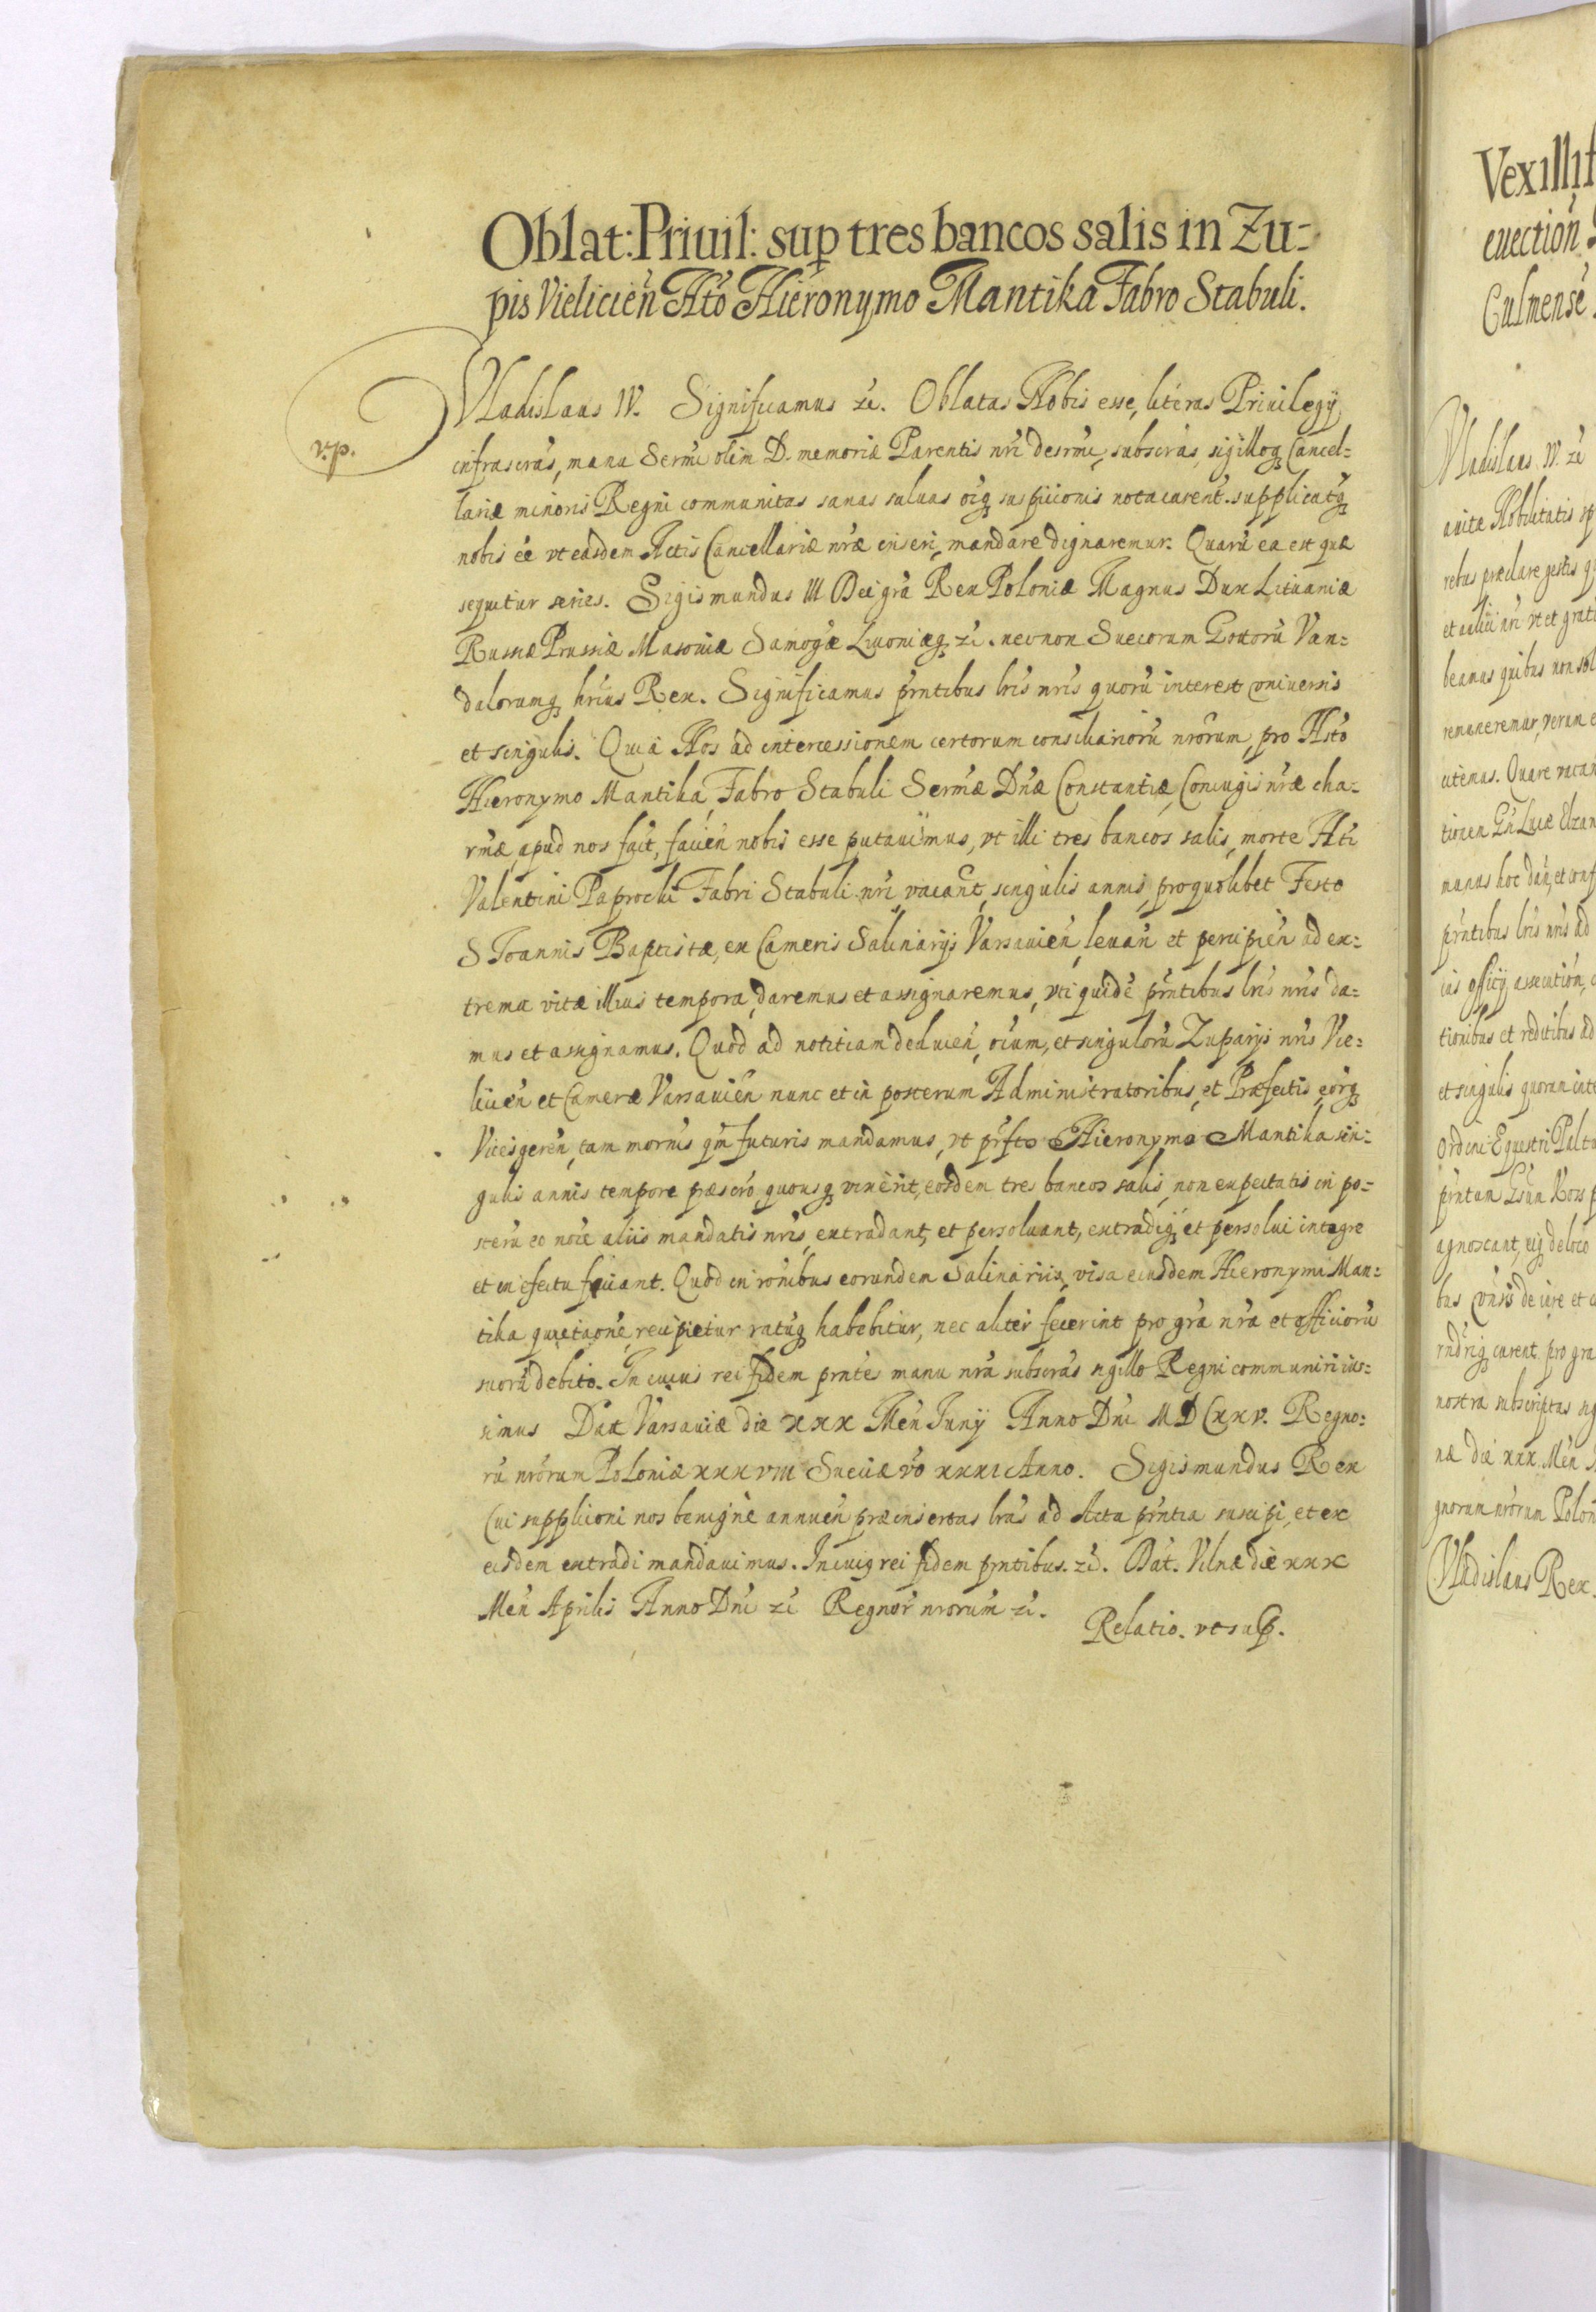 Oblat: Priuil: sup tres bancos salis in Zu=
pis Vielicien̄ Hto Hieronymo Mantika Fabro Stabuli.
v.p.
Vladislaus IV. Significamus zc. Oblatas Nobis esse, literas Priuilegÿ
infrascras, manu Sermi olim D. memoriæ Parentis nri desrmi, subscras, sigilloq Cancel=
lariæ minoris Regni communitas sanas saluas oiq suspicionis nota caren̄t. supplicatq
nobis ee vt easdem Actis Cancellariæ nræ inseri, mandare dignaremur. Quarū ea est quæ
sequitur series. Sigismundus III Dei gra Rex Poloniæ Magnus Dux Lituaniæ
Russiæ Prussiæ Masoviæ Samogæ Liuoniæq zc. necnon Suecorum Gottorū Van=
dalorumq hrius Rex. Significamus prntibus lris nris quorū interest vniuersis
et singulis. Quia Nos ad intercessionem certorum consiliariorū nrorum, pro Hsto
Hieronymo Mantika, Fabro Stabuli Sermæ Dnæ Constantiæ, Coniugis nræ cha=
rmæ, apud nos fact, facien̄ nobis esse putauimus, vt illi tres bancos salis, morte Hti
Valentini Paprocki Fabri Stabuli nri, vacant, singulis annis, pro quolibet Festo
S Joannis Baptistæ, ex Cameris Salinarijs Varsauien̄, leuan̄ et percipien̄ ad ex=
trema vitæ illius tempora, daremus et assignaremus, vti quidē prntibus lris nris da=
mus et assignamus. Quod ad notitiam deducen̄, oium, et singulorū Zuparijs nris Vie=
licien̄ et Cameræ Varsauien̄ nunc et in posterum Administratoribus, et Præfectis, eorq
Vicesgeren̄, tam mornis qm futuris mandamus, vt prfto Hieronymo Mantika sin=
gulis annis tempore præscro, quousq vixerit, eosdem tres bancos salis, non expectatis in po=
sterū eo noie aliis mandatis nris, extradant, et persoluant, extradiq, et persolui integre
et in efectu faciant. Quod in ronibus eorundem Salinariis, visa eiusdem Hieronymi Man=
tika quietaone, recipietur ratuq habebitur, nec aliter fecerint pro gra nra et officiorū
suorū debito. In cuius rei fidem prntes manu nra subscras sigillo Regni communiri ius=
simus Dat Varsauiæ die xxx Men Junÿ Anno Dni MDCxxv. Regno=
rū nrorum Poloniæ xxxviii Sueciæ vo xxxi Anno. Sigismundus Rex
Cui supplicioni nos benignè annuen̄ præinsertas lras ad Acta prntia suscipi, et ex
eisdem extradi mandauimus. In cuiq rei fidem prntibus. zc. Dat. Vilnæ die xxx
Men Aprilis Anno Dni zc Regnor nrorum zc.
Relatio. vt sup.
Vexillif
euection
Culmense
Vladislaus IV. zc
auitæ Nobilitatis sp
rebus præclare gestis q
beamus quibus non sol
remuneremur, verum e
utemus. Quare vacan
prntibus lris nris ad
tionibus et reditibus ad
et singulis quorum inte
Ordini Equestri Palt
agnoscant, eiq de loco
rndriq curent pro gra
nostra subscriptas sig
næ die xxx Men
gnorum nrorum Polon
Vladislaus Rex.